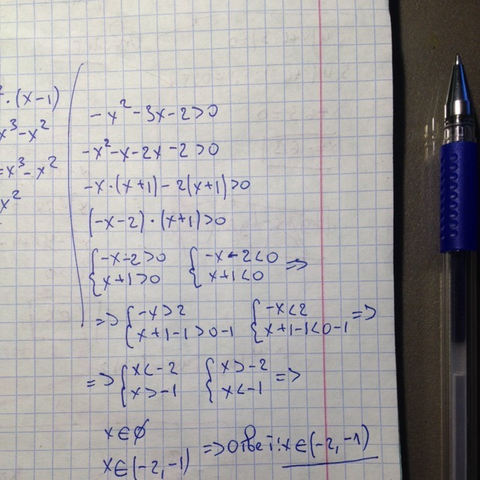 ² · (x-1)
x³-x²
=x³-x²
x²
-x²-3x-2>0
-x²-x-2x-2>0
-x·(x+1)-2(x+1)>0
(-x-2)·(x+1)>0
{-x-2>0 {-x-2<0 =>
{x+1>0 {x+1<0
=> {-x>2 {-x<2 =>
{x+1-1>0-1 {x+1-1<0-1
=> {x<-2 {x>-2 =>
{x>-1 {x<-1
x∈∅
x∈(-2,-1) => Ответ: x∈(-2,-1)